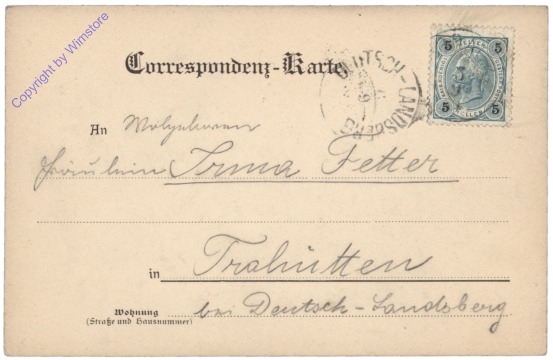 Copyright by Wimstore
Correspondenz-Karte
DEUTSCH-LANDSBERG
5 5
5 5
An Wolgeboren
Fräulein Irma Fetter
in Trahütten
Wohnung
(Straße und Hausnummer)
bei Deutsch-Landsberg